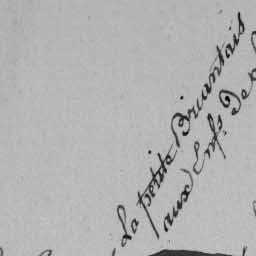 La petite Briantais
aux Enfs De